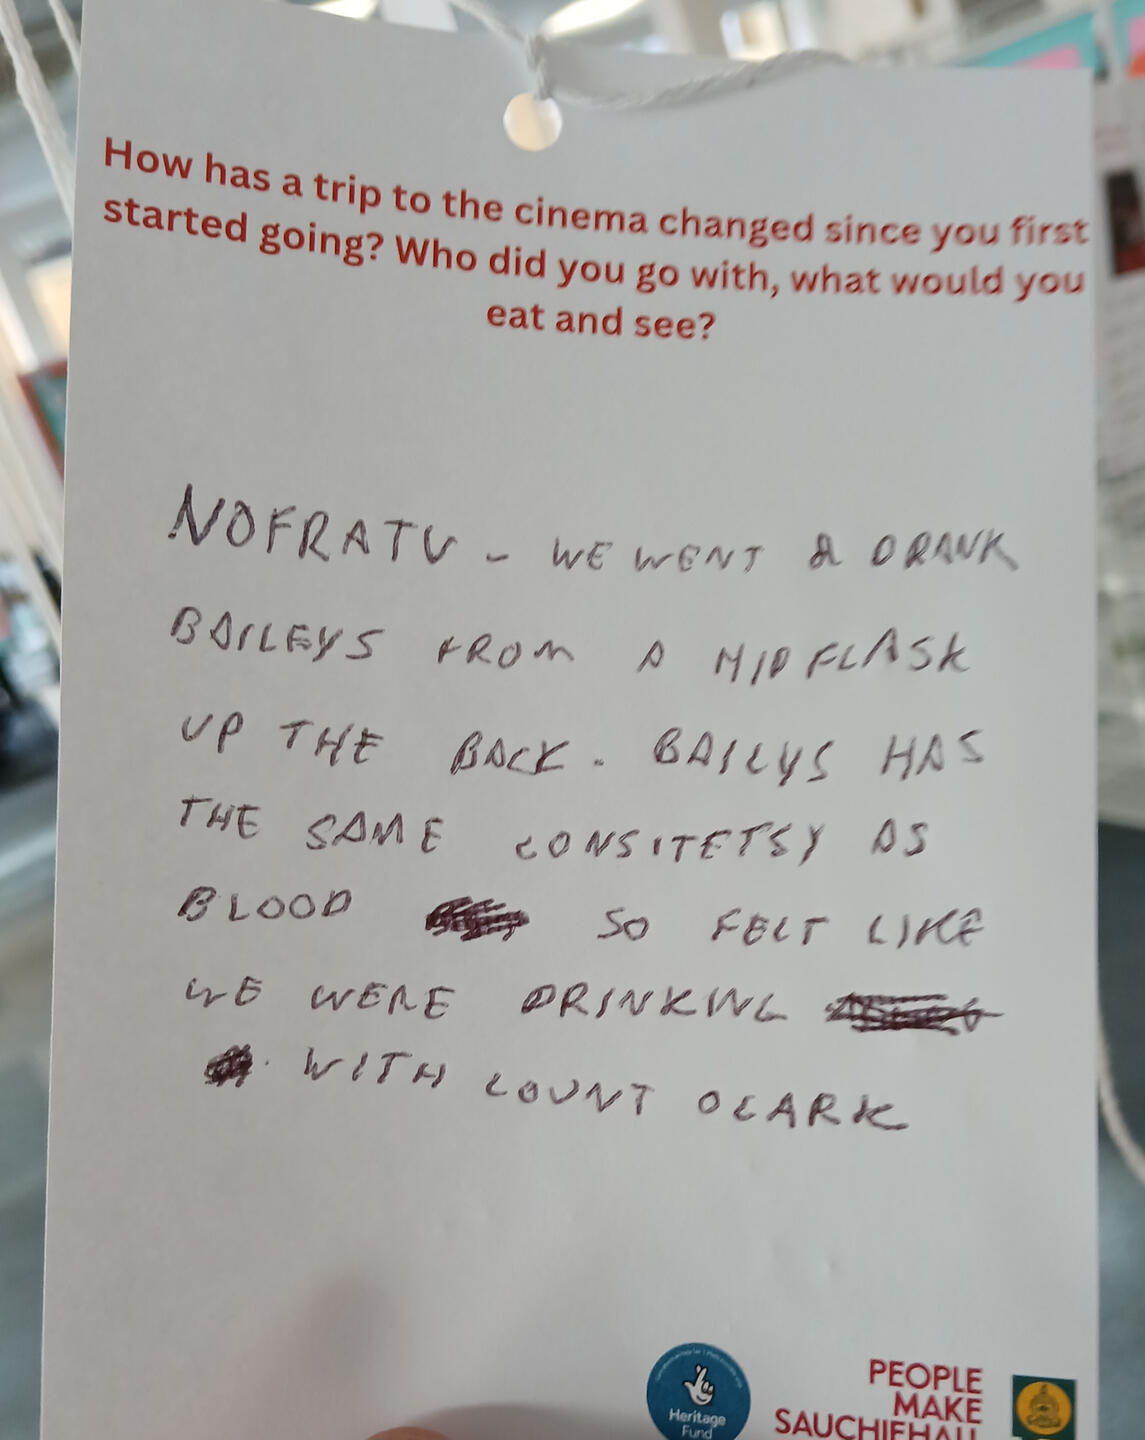 How has a trip to the cinema changed since you first
started going? Who did you go with, what would you
eat and see?
NOFRATU - WE WENT & DRANK
BAILEYS FROM A HIPFLASK
UP THE BACK. BAILYS HAS
THE SAME CONSITETSY AS
BLOOD SO FELT LIKE
WE WERE DRINKING
WITH COUNT OLARK
Heritage
Fund
PEOPLE
MAKE
SAUCHIEHALL